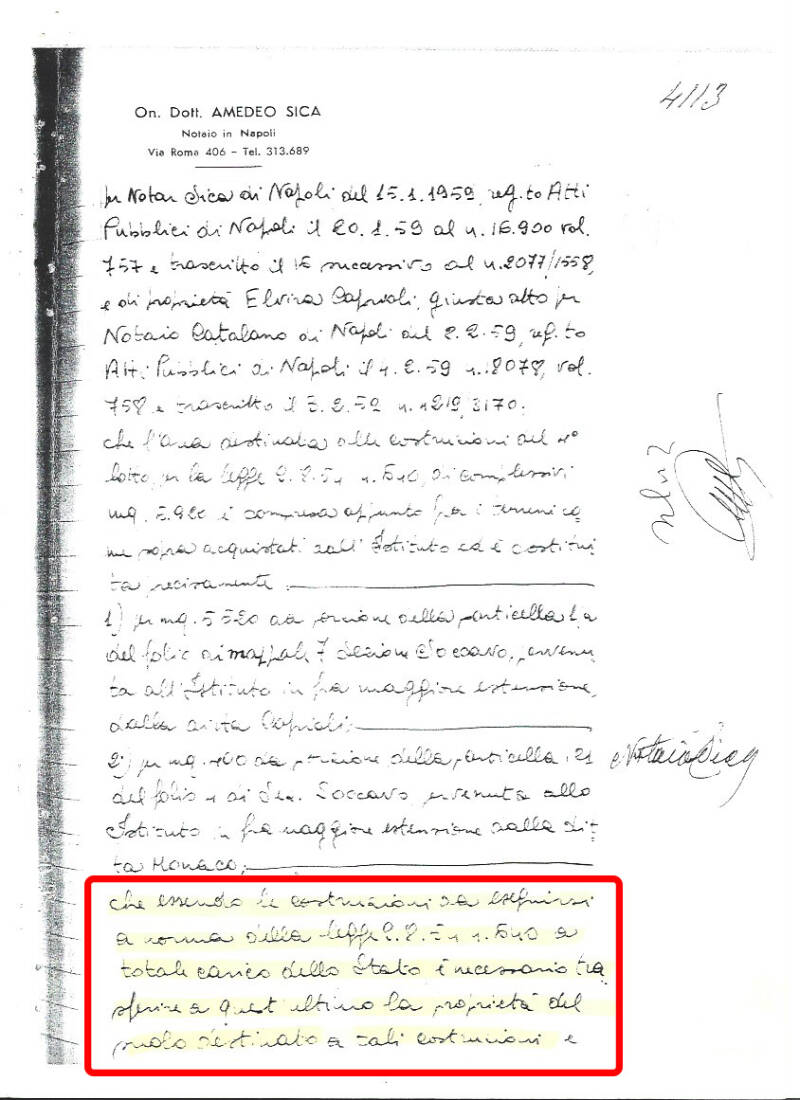 4113
On. Dott. AMEDEO SICA
Notaio in Napoli
Via Roma 406 – Tel. 313.689
per Notar Sica di Napoli del 15.1.1959, reg.to Atti
Pubblici di Napoli il 20.1.59 al n. 16.900 vol.
757 e trascritto il 16 successivo al n. 2077/1558,
e di proprietà Elvira Caprioli, giusta atto per
Notaio Catalano di Napoli del 2.2.59, reg.to
Atti Pubblici di Napoli il 4.2.59 n. 18078, vol.
758 e trascritto il 5.2.59 n. 4219/3170;
che l'area destinata alle costruzioni del 4°
lotto, per la legge 9.8.54 n. 640, di complessivi
mq. 5.920 è compresa appunto fra i terreni co
me sopra acquistati dall'Istituto ed è costitui
ta precisamente
1) per mq. 5520 da porzione della particella 1/a
del folio di mappale 7 Sezione Soccavo, pervenu
ta all'Istituto in fra maggiore estensione,
dalla ditta Caprioli;
2) per mq. 400 da porzione della particella 21
del folio 4 di Sez. Soccavo, pervenuta allo
Istituto in fra maggiore estensione dalla dit
ta Monaco;
Notaio Sica
che essendo le costruzioni da eseguirsi
a norma della legge 9.8.54 n. 640 a
totale carico dello Stato è necessario tra
sferire a quest'ultimo la proprietà del
suolo destinato a tali costruzioni e